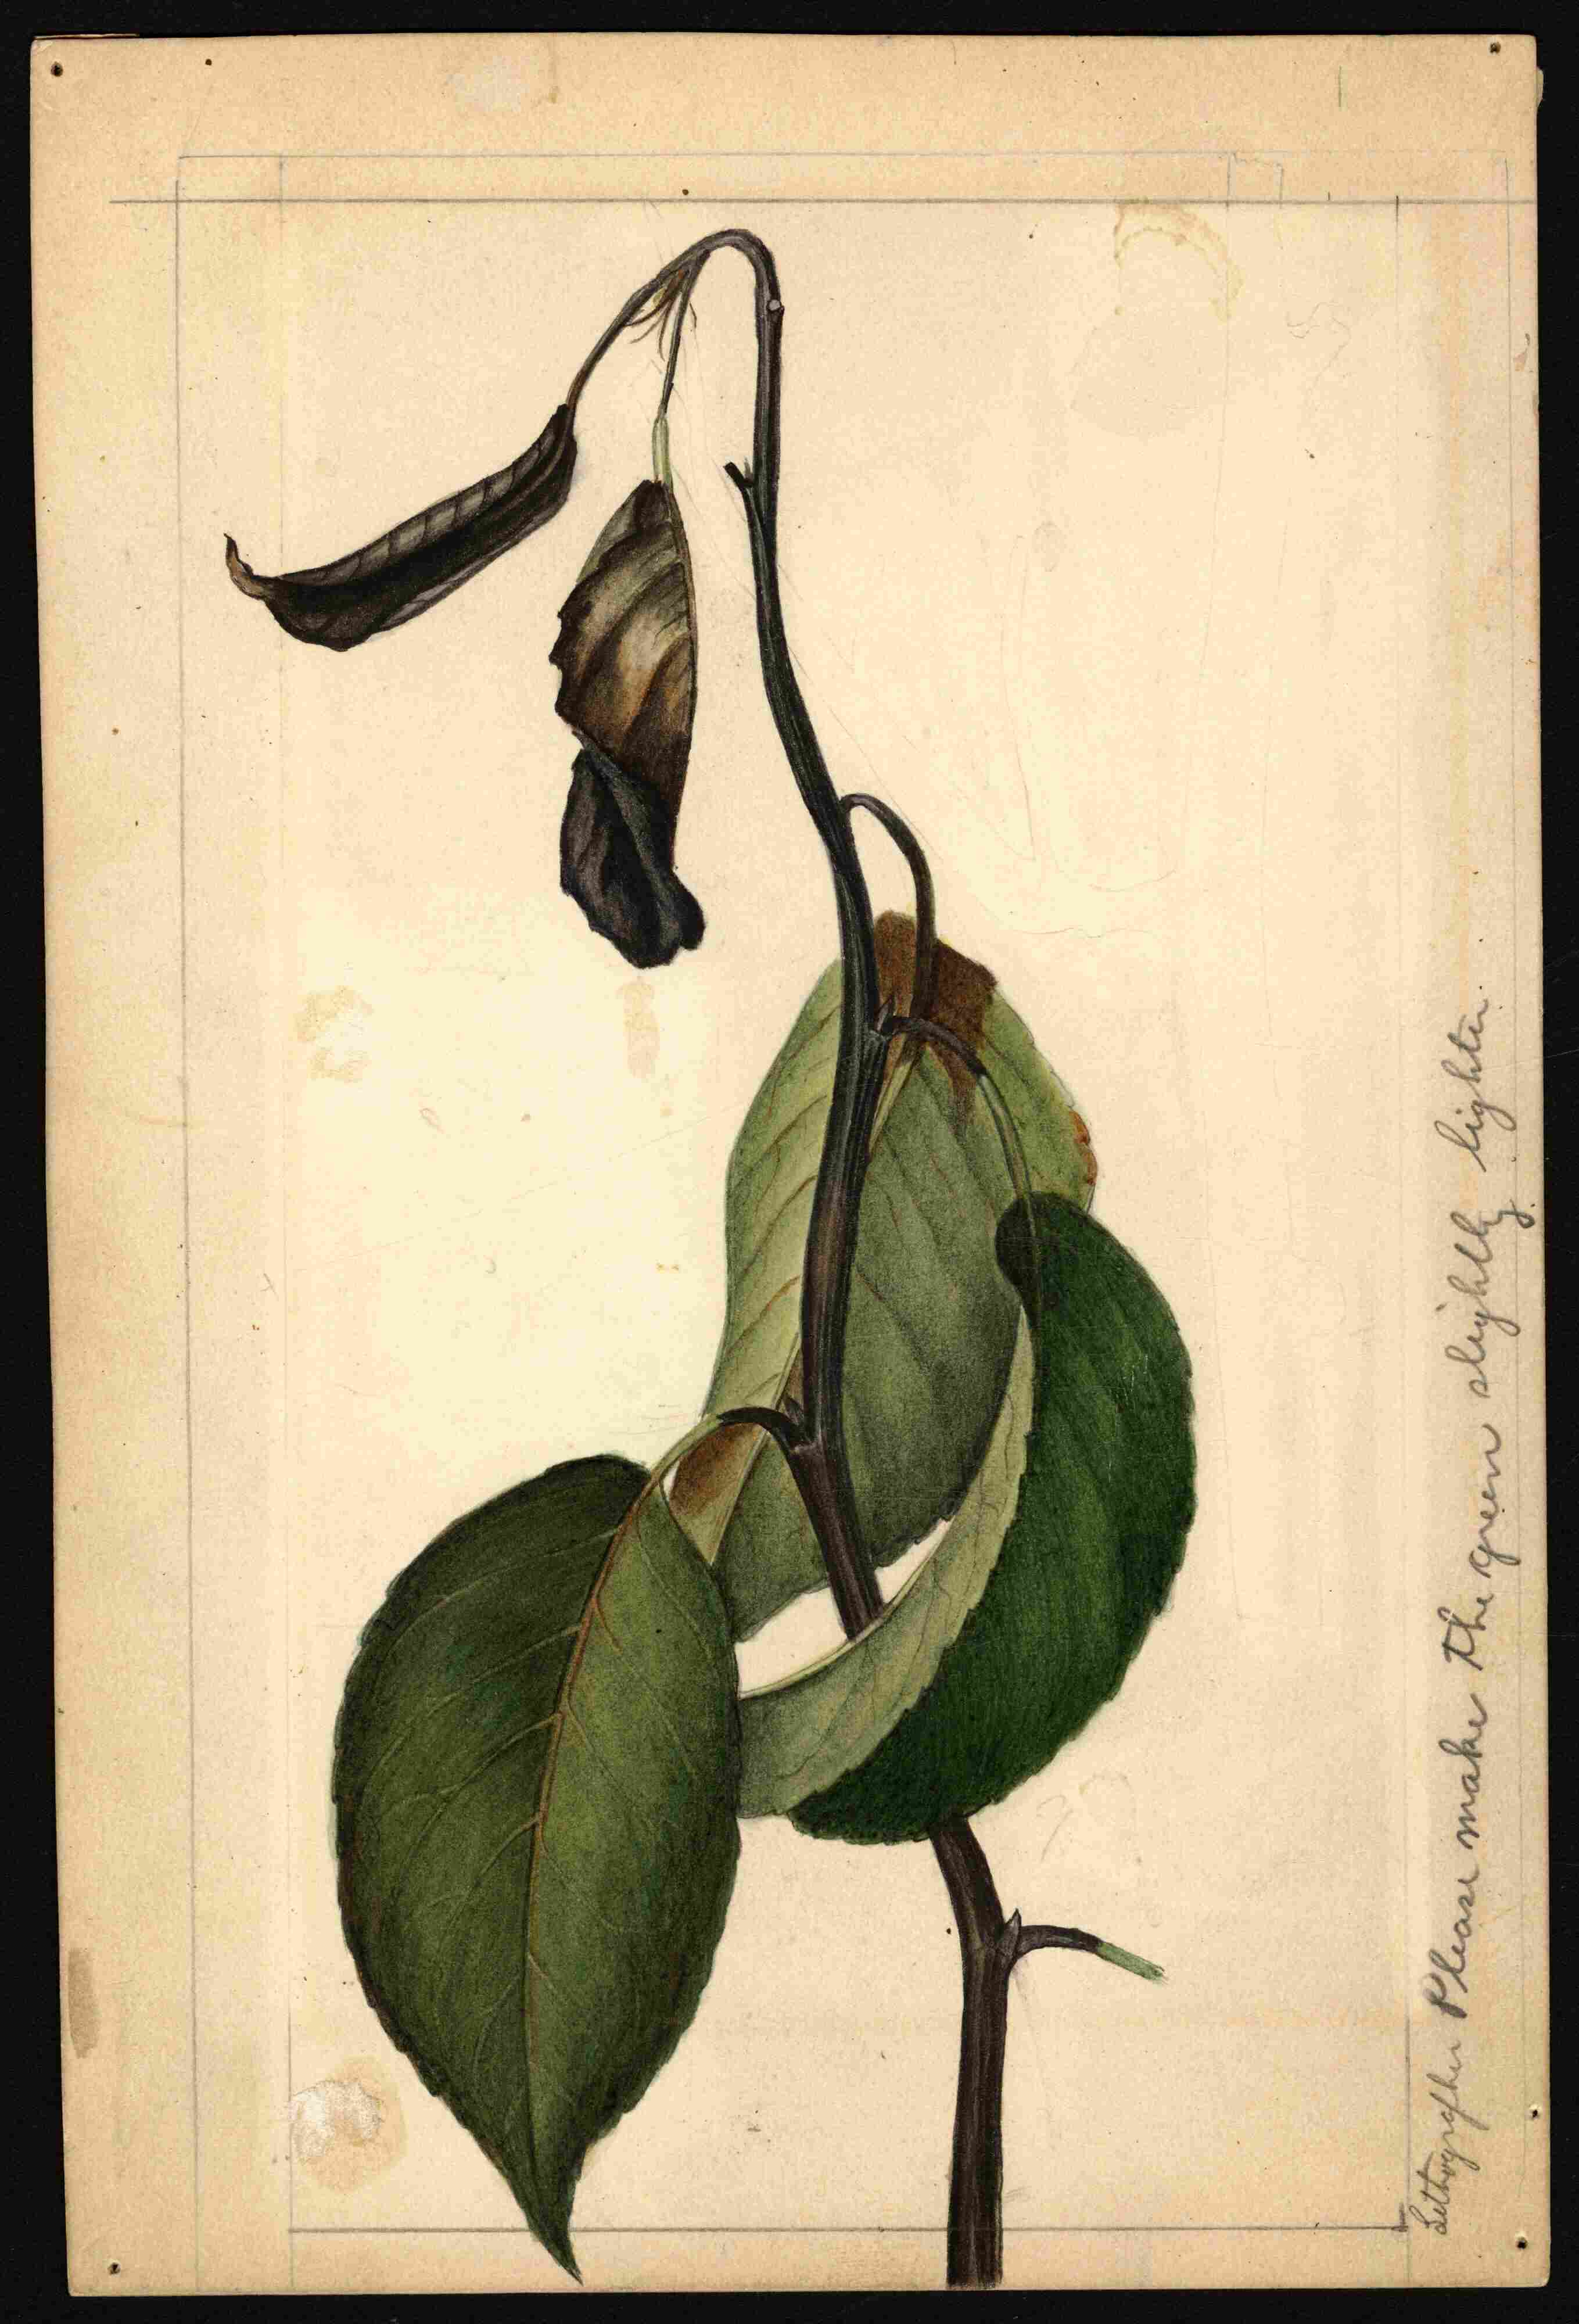 Lithographer Please make the green slightly lighter.